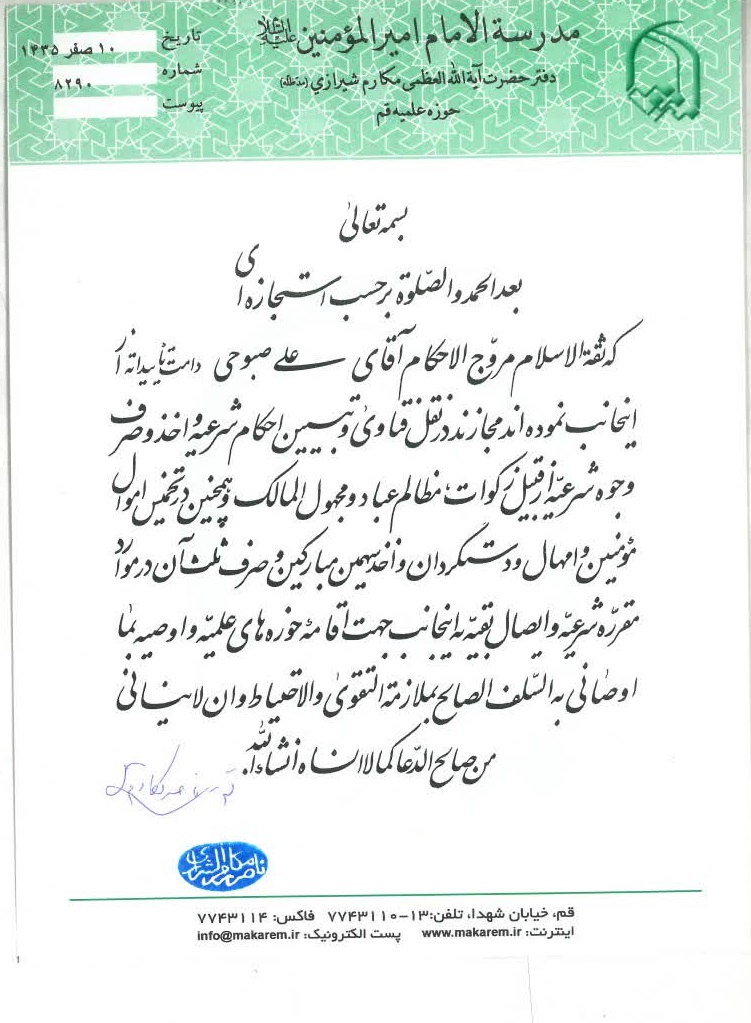 مدرسة الامام امیرالمؤمنین علیه‌السلام
دفتر حضرت آیة الله العظمی مکارم شیرازي (مدظله)
حوزه علمیه قم
تاریخ ۱۰ صفر ۱۴۳۵
شماره ۸۲۹۰
پیوست
بسمه تعالیٰ
بعد الحمد والصّلوة برحسب استجازه‌ای
که ثقة الاسلام مروّج الاحکام آقای علی صبوحی دامت تاییداته از
اینجانب نموده اند مجازند در نقل فتاویٰ و تبیین احکام شرعیه و اخذ و صرف
وجوه شرعیّه از قبیل زکوات، مظالم عباد و مجهول المالک و همچنین در تخمیس اموال
مؤمنین و امهال و دستگردان و اخذ سهمین مبارکین و صرف ثلث آن در موارد
مقرّره شرعیّه و ایصال بقیّه به اینجانب جهت اقامهٔ حوزه های علمیّه و اوصیه بما
اوصانی به السّلف الصالح بملازمة التقویٰ والاحتیاط وان لاینسانی
من صالح الدّعا کما لا انساه انشاءالله.
ناصر مکارم الشیرازی
قم، خیابان شهدا، تلفن: ۱۳-۷۷۴۳۱۱۰ فاکس: ۷۷۴۳۱۱۴
اینترنت: www.makarem.ir پست الکترونیک: info@makarem.ir